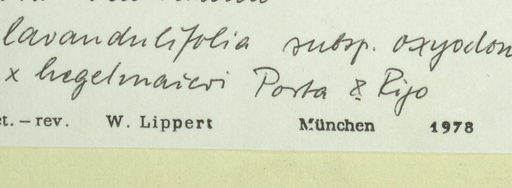 lavandulifolia subsp. oxyodon
x hegelmaieri Porta & Rigo
et. – rev. W. Lippert München 1978